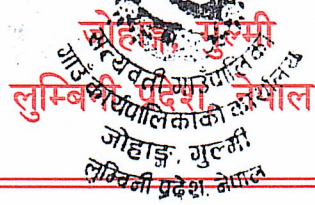 जोहाङ्ग, गुल्मी
लुम्बिनी प्रदेश, नेपाल
सत्यवती गाउँपालिका
गाउँ कार्यपालिकाको कार्यालय
जोहाङ्ग, गुल्मी
लुम्बिनी प्रदेश, नेपाल